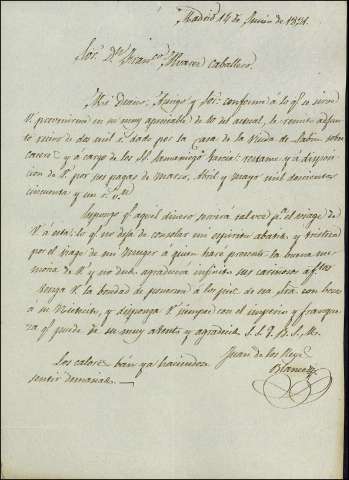 Madrid 14 de Junio de 1821.
Sor. Dn. Franco. Alvarez Caballero.
Muy Señor, Amigo y Sor: conforme á lo qe. se sirve
V. prevenirme en su muy apreciable de 10 del actual, le remito adjunto
recivo de dos mil r. dado por la Casa de la Viuda de sobre
y á cargo de los SS. Samaniego Garcia: restame y á disposi-
cion de V. por sus pagas de Marzo, Abril y mayo mil doscientos
cincuenta y un r.
Supongo qe. aquel dinero servirá tal vez pa. el viage de
V. á esta; lo qe. no deja de consolar mi espiritu abatido y tristeza
por el viage de mi Muger á quien haré presente la buena me-
moria de V. y no dude agradecerá infinito sus cariñosos afectos.
Tenga V. la bondad de ponerme á los pies de esa Sra. con besos
á su Nietecito, y disponga V. siempre con el imperio y franque-
za qe. puede de su muy atento y agradecido S. S. Q. B. S. M.
Los calores ván ya haciendose
sentir demasiado.
Juan de los Reyes
Blanco